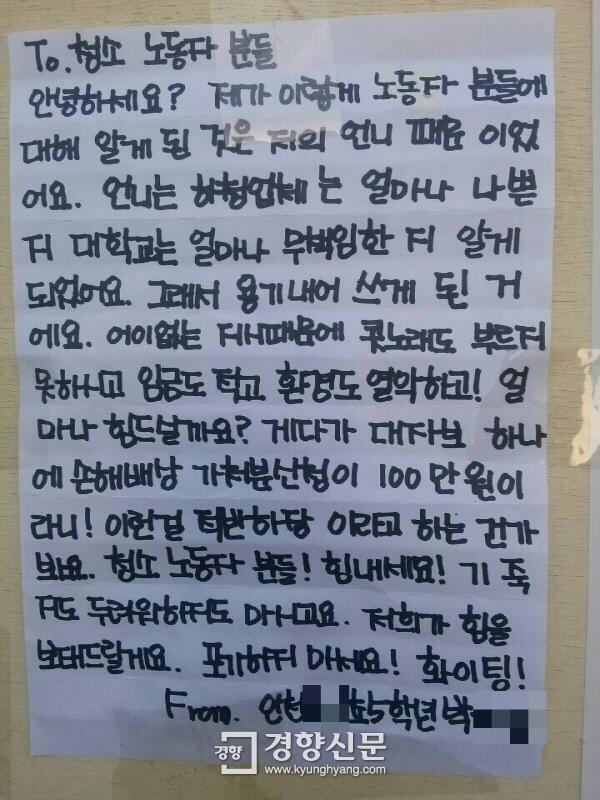 To.청소 노동자 분들
안녕하세요? 제가 이렇게 노동자 분들에
대해 알게 된 것은 저의 언니 때문 이었
어요. 언니는 하청업체 는 얼마나 나쁜
지 대학교는 얼마나 무책임한 지 알게
되었어요. 그래서 용기내어 쓰게 된 거
에요. 어이없는 지시때문에 콧노래도 부르지
못하시고 임금도 적고 환경도 열악하고! 얼
마나 힘드날까요? 게다가 대자보 하나
에 손해배상 가처분신청이 100만원이
라니! 이런걸 적반하장 이라고 하는 건가
봐요. 청소 노동자 분들! 힘내세요! 기 죽
지도 두려워하지도 마시고요. 저희가 힘을
보태드릴게요. 포기하지 마세요! 화이팅!
From. 인천 초5학년 박
경향 경향신문
www.kyunghyang.com